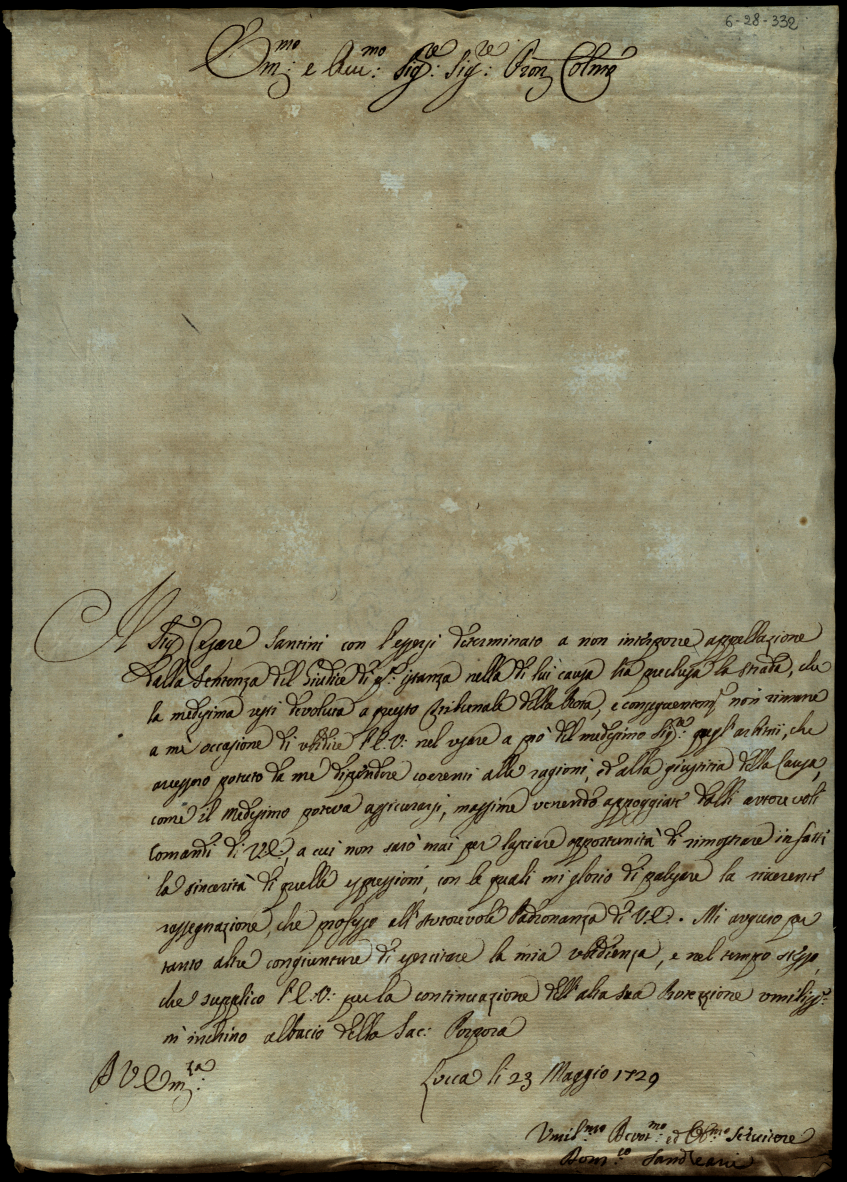 6-28-332
Em:mo e Rev:mo Sig:re Sig:re Pron Colmo
Il Sig.r Cesare Santini con l'essersi determinato a non interporre appellazione
dalla Sentenza del Giudice di p.a istanza nella di lui causa hà preclusa la strada, che
la medesima resti devoluta a questo Tribunale della Rota, e conseguentem.te non rimane
a mè occasione di ubidire l'E.V: nel usare a prò del medesimo Sig:re quegl'arbitrii, che
avessero potuto da mè dipendere coerenti alle ragioni, ed alla giustitia della Causa,
come il medesimo poteva assicurarsi, massime venendo appoggiate dalli autorevoli
Comandi di V.E., a cui non sarò mai per lasciare opportunità di rimostrare in fatti
la sincerità di quelle espressioni, con le quali mi glorio di palesare la riverente
rassegnazione, che professo all'Autorevole Padronanza di V.E. Mi auguro per
tanto altre congiunture di esercitare la mia ubidienza, e nel tempo stesso,
che supplico l'E:V: per la continuazione dell'alta sua Protezzione umiliss.e
m'inchino al bacio della Sac: Porpora
D V Em:za
Lucca li 23 Maggio 1729
Umil:mo Devot:mo ed Obl:mo Servitore
Dom:co